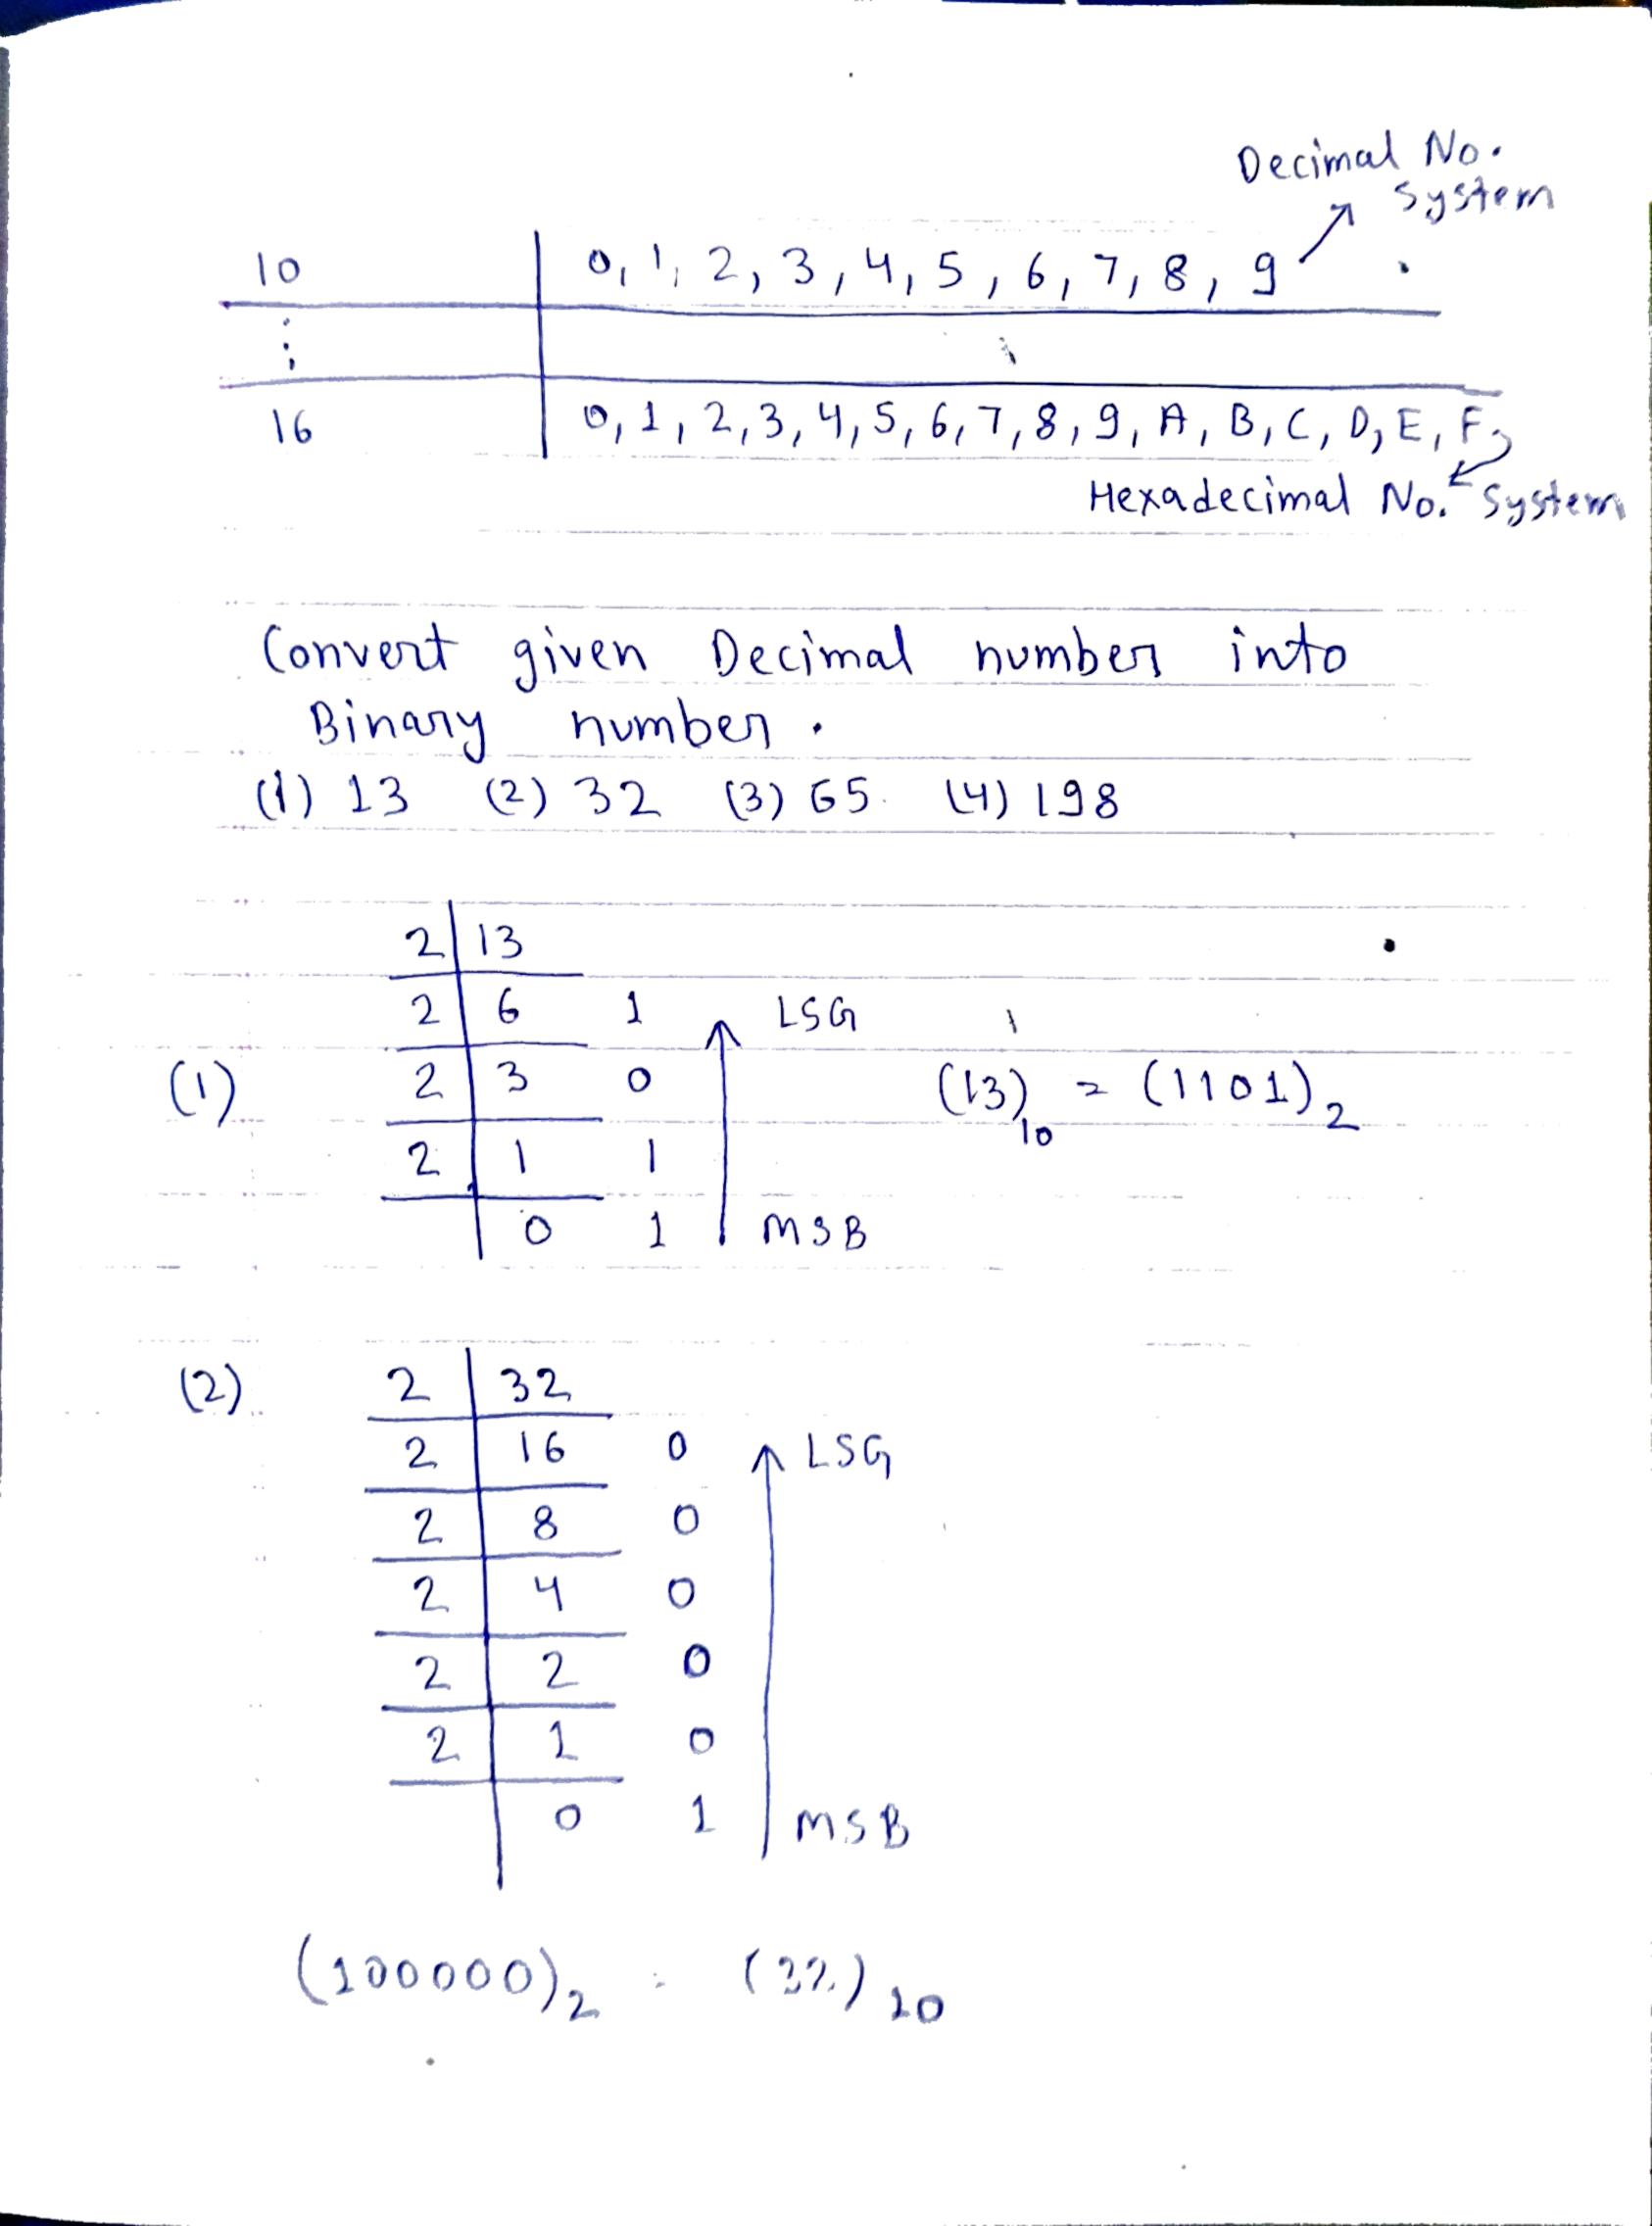 Decimal No.
System
10 0, 1, 2, 3, 4, 5, 6, 7, 8, 9
16 0, 1, 2, 3, 4, 5, 6, 7, 8, 9, A, B, C, D, E, F
Hexadecimal No. System
Convert given Decimal number into
Binary number.
(1) 13 (2) 32 (3) 65. (4) 198
2 13
2 6 1 LSG
(1) 2 3 0 (13)10 = (1101)2
2 1 1
0 1 MSB
(2) 2 32
2 16 0 LSG
2 8 0
2 4 0
2 2 0
2 1 0
0 1 MSB
(100000)2 = (32)10